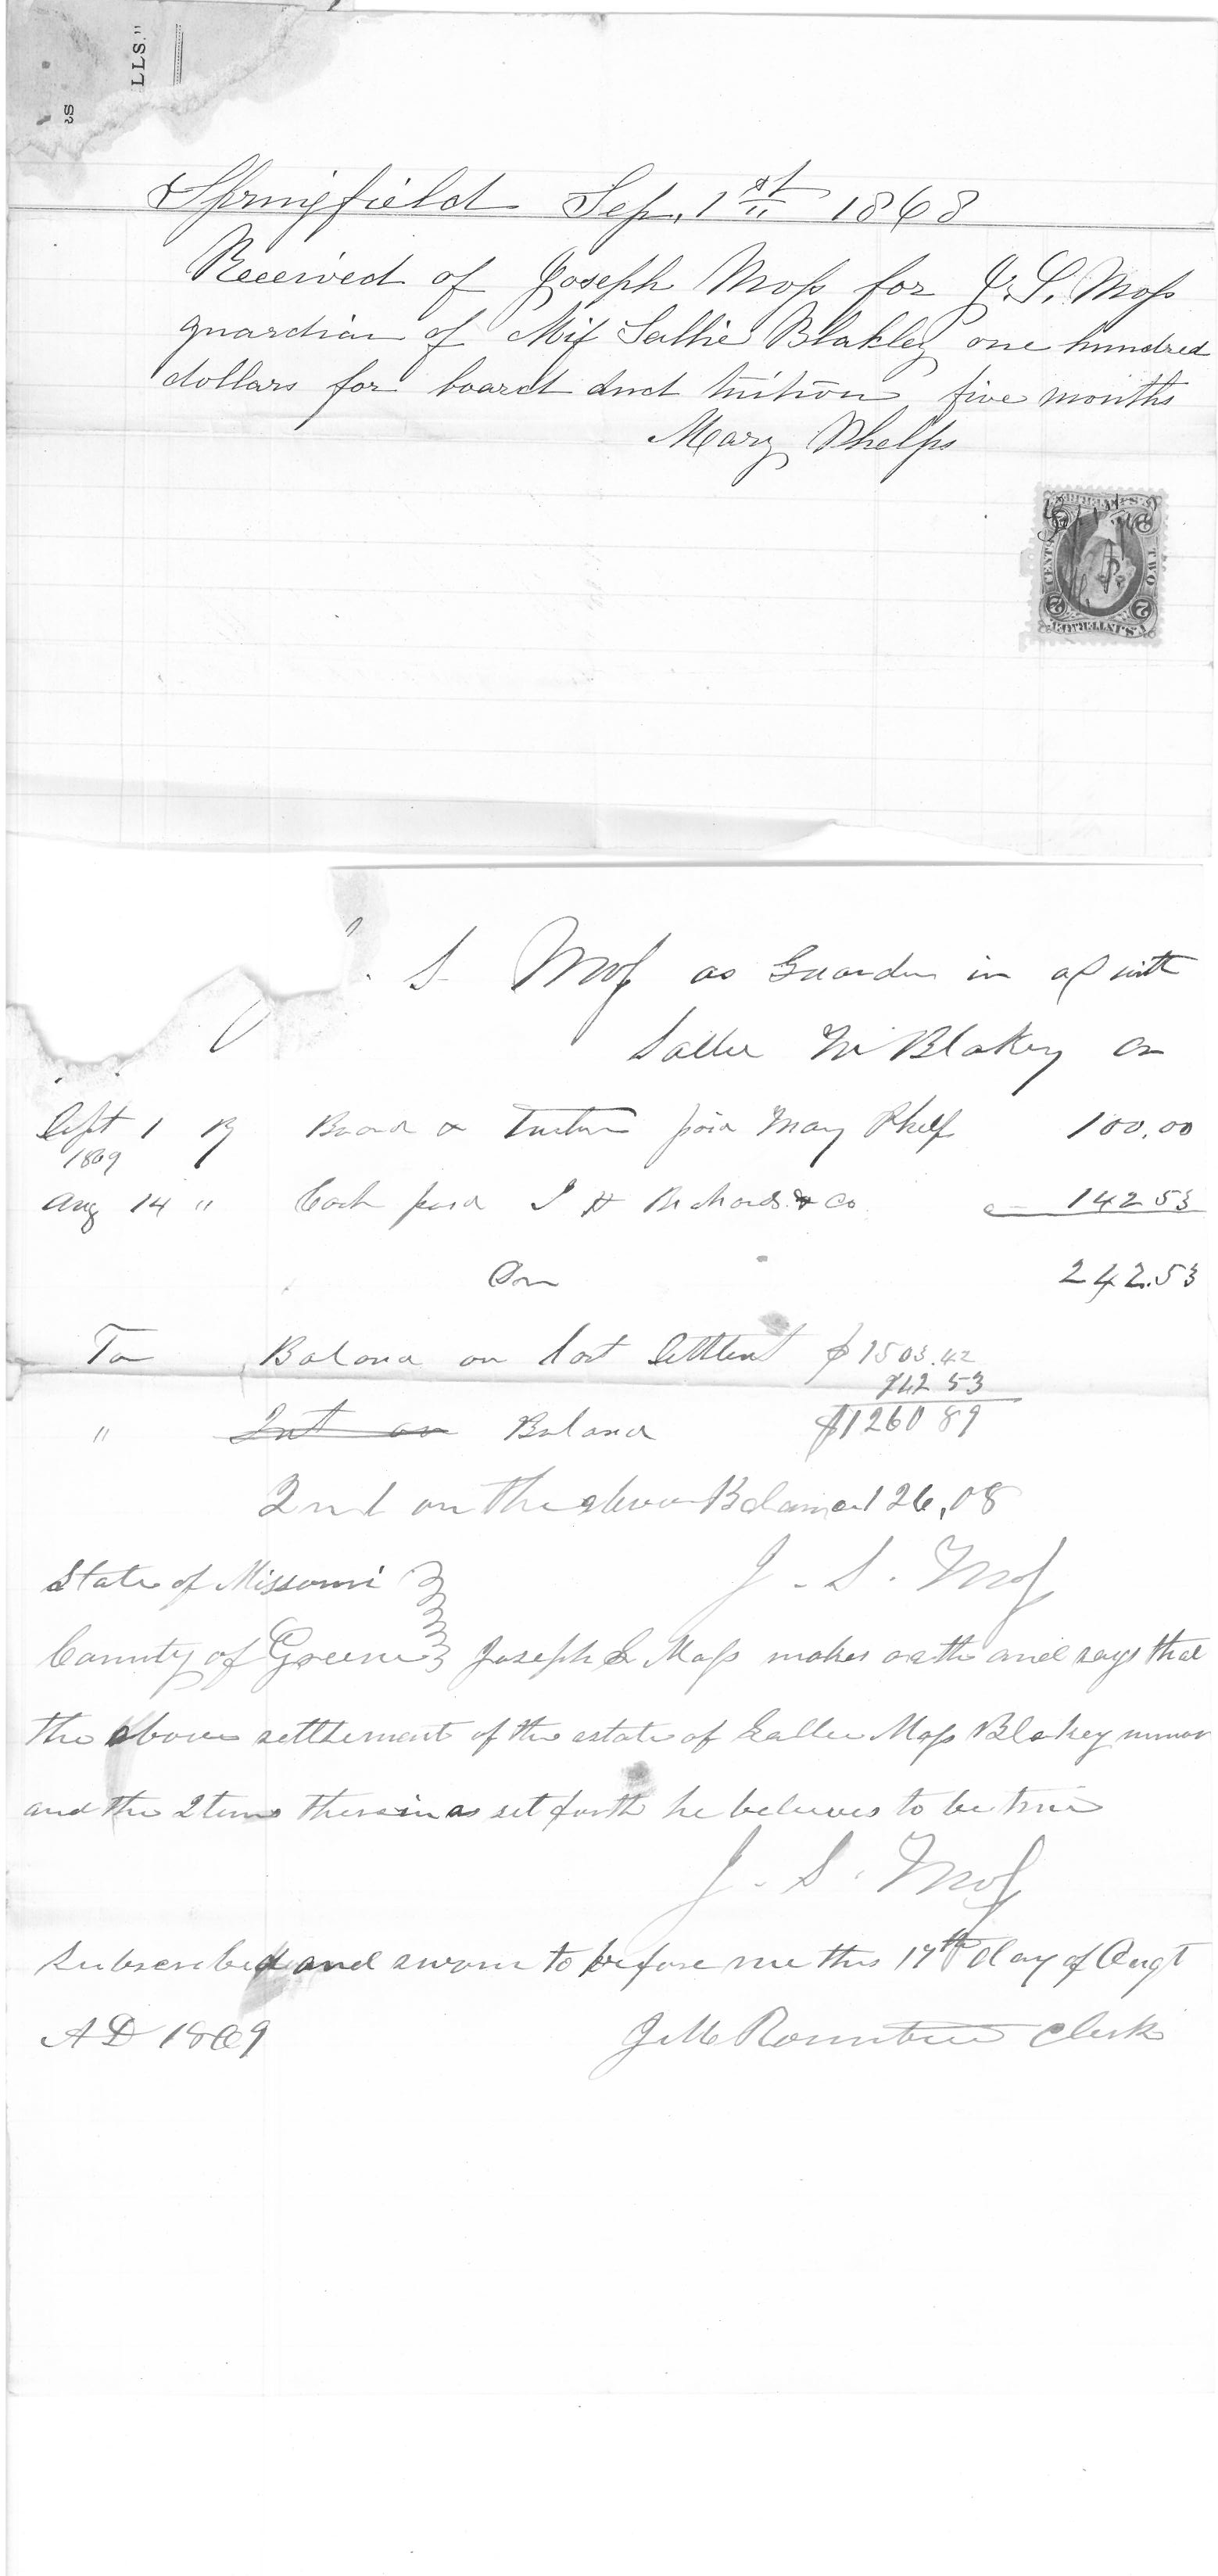 LLS."
RS
Springfield Sep. 1st 1868
Received of Joseph Moss for J. S. Moss
guardian of Miss Sallie Blakley one hundred
dollars for board and tuition five months
Mary Phelps
U.S. INTER. REV.
TWO
CENTS
2 2
S Moss as Guardn in a/c with
Sallie M Blakey Cr
Sept 1 By Board & Tuition paid Mary Phelps 100.00
1869
Aug 14 " Cash paid J H Richards & Co 142 53
242.53
To Balance on last Settlemt $1503.42
242 53
" Int on Balance $1260 89
Int on the above Balance 126.08
J. S. Moss
State of Missouri
County of Greene Joseph S Moss makes oath and says that
the above settlement of the estate of Sallie Moss Blakey minor
and the Items therein as set forth he believes to be true
J. S. Moss
Subscribed and sworn to before me this 17th day of Augt
AD 1869 J M Rountree Clerk